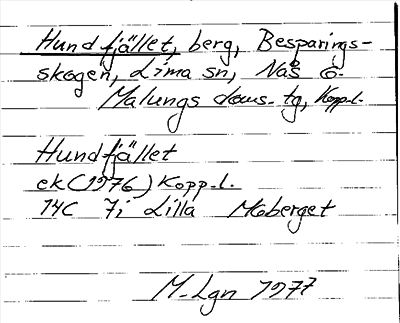 Hundfjället, berg, Besparings-
skogen, Lima sn, Nås o.
Malungs doms. tg, Kopp.l.
Hundfjället
ek (1976) Kopp.l.
14C 7i Lilla Moberget
M.Lgn 1977